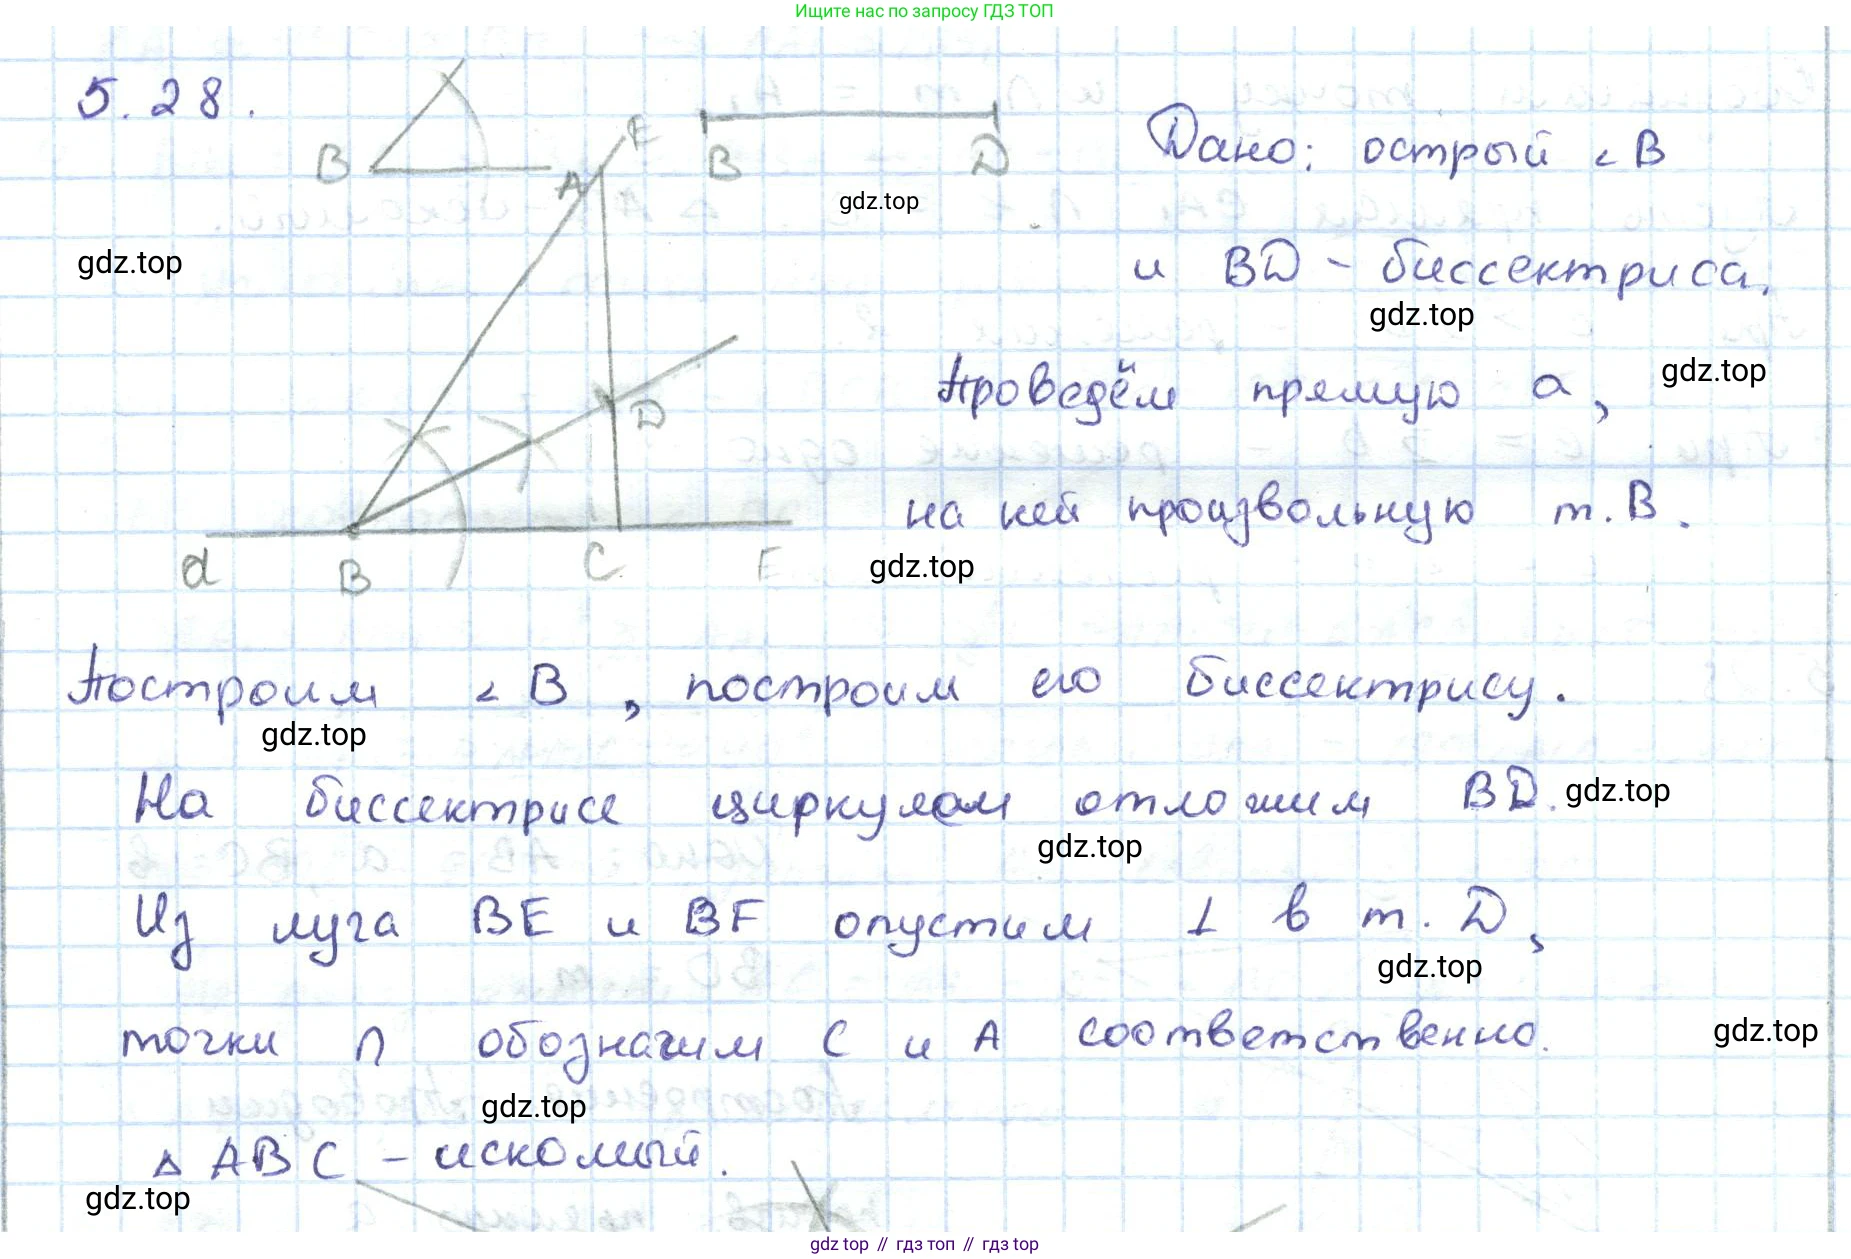 Ищите нас по запросу ГДЗ ТОП
5.28.
B
A
F
B
D
Дано: острый ∠B
gdz.top
gdz.top
и BD - биссектриса.
gdz.top
gdz.top
Проведём прямую a,
D
на ней произвольную т. B.
a
B
C
E
gdz.top
Построим ∠B, построим его биссектрису.
gdz.top
На биссектрисе циркулем отложим BD.
gdz.top
gdz.top
Из луга BE и BF опустим ⊥ в т. D,
gdz.top
точки ∩ обозначим C и A соответственно.
gdz.top
gdz.top
△ ABC - искомый.
gdz.top
gdz top // гдз топ // gdz top